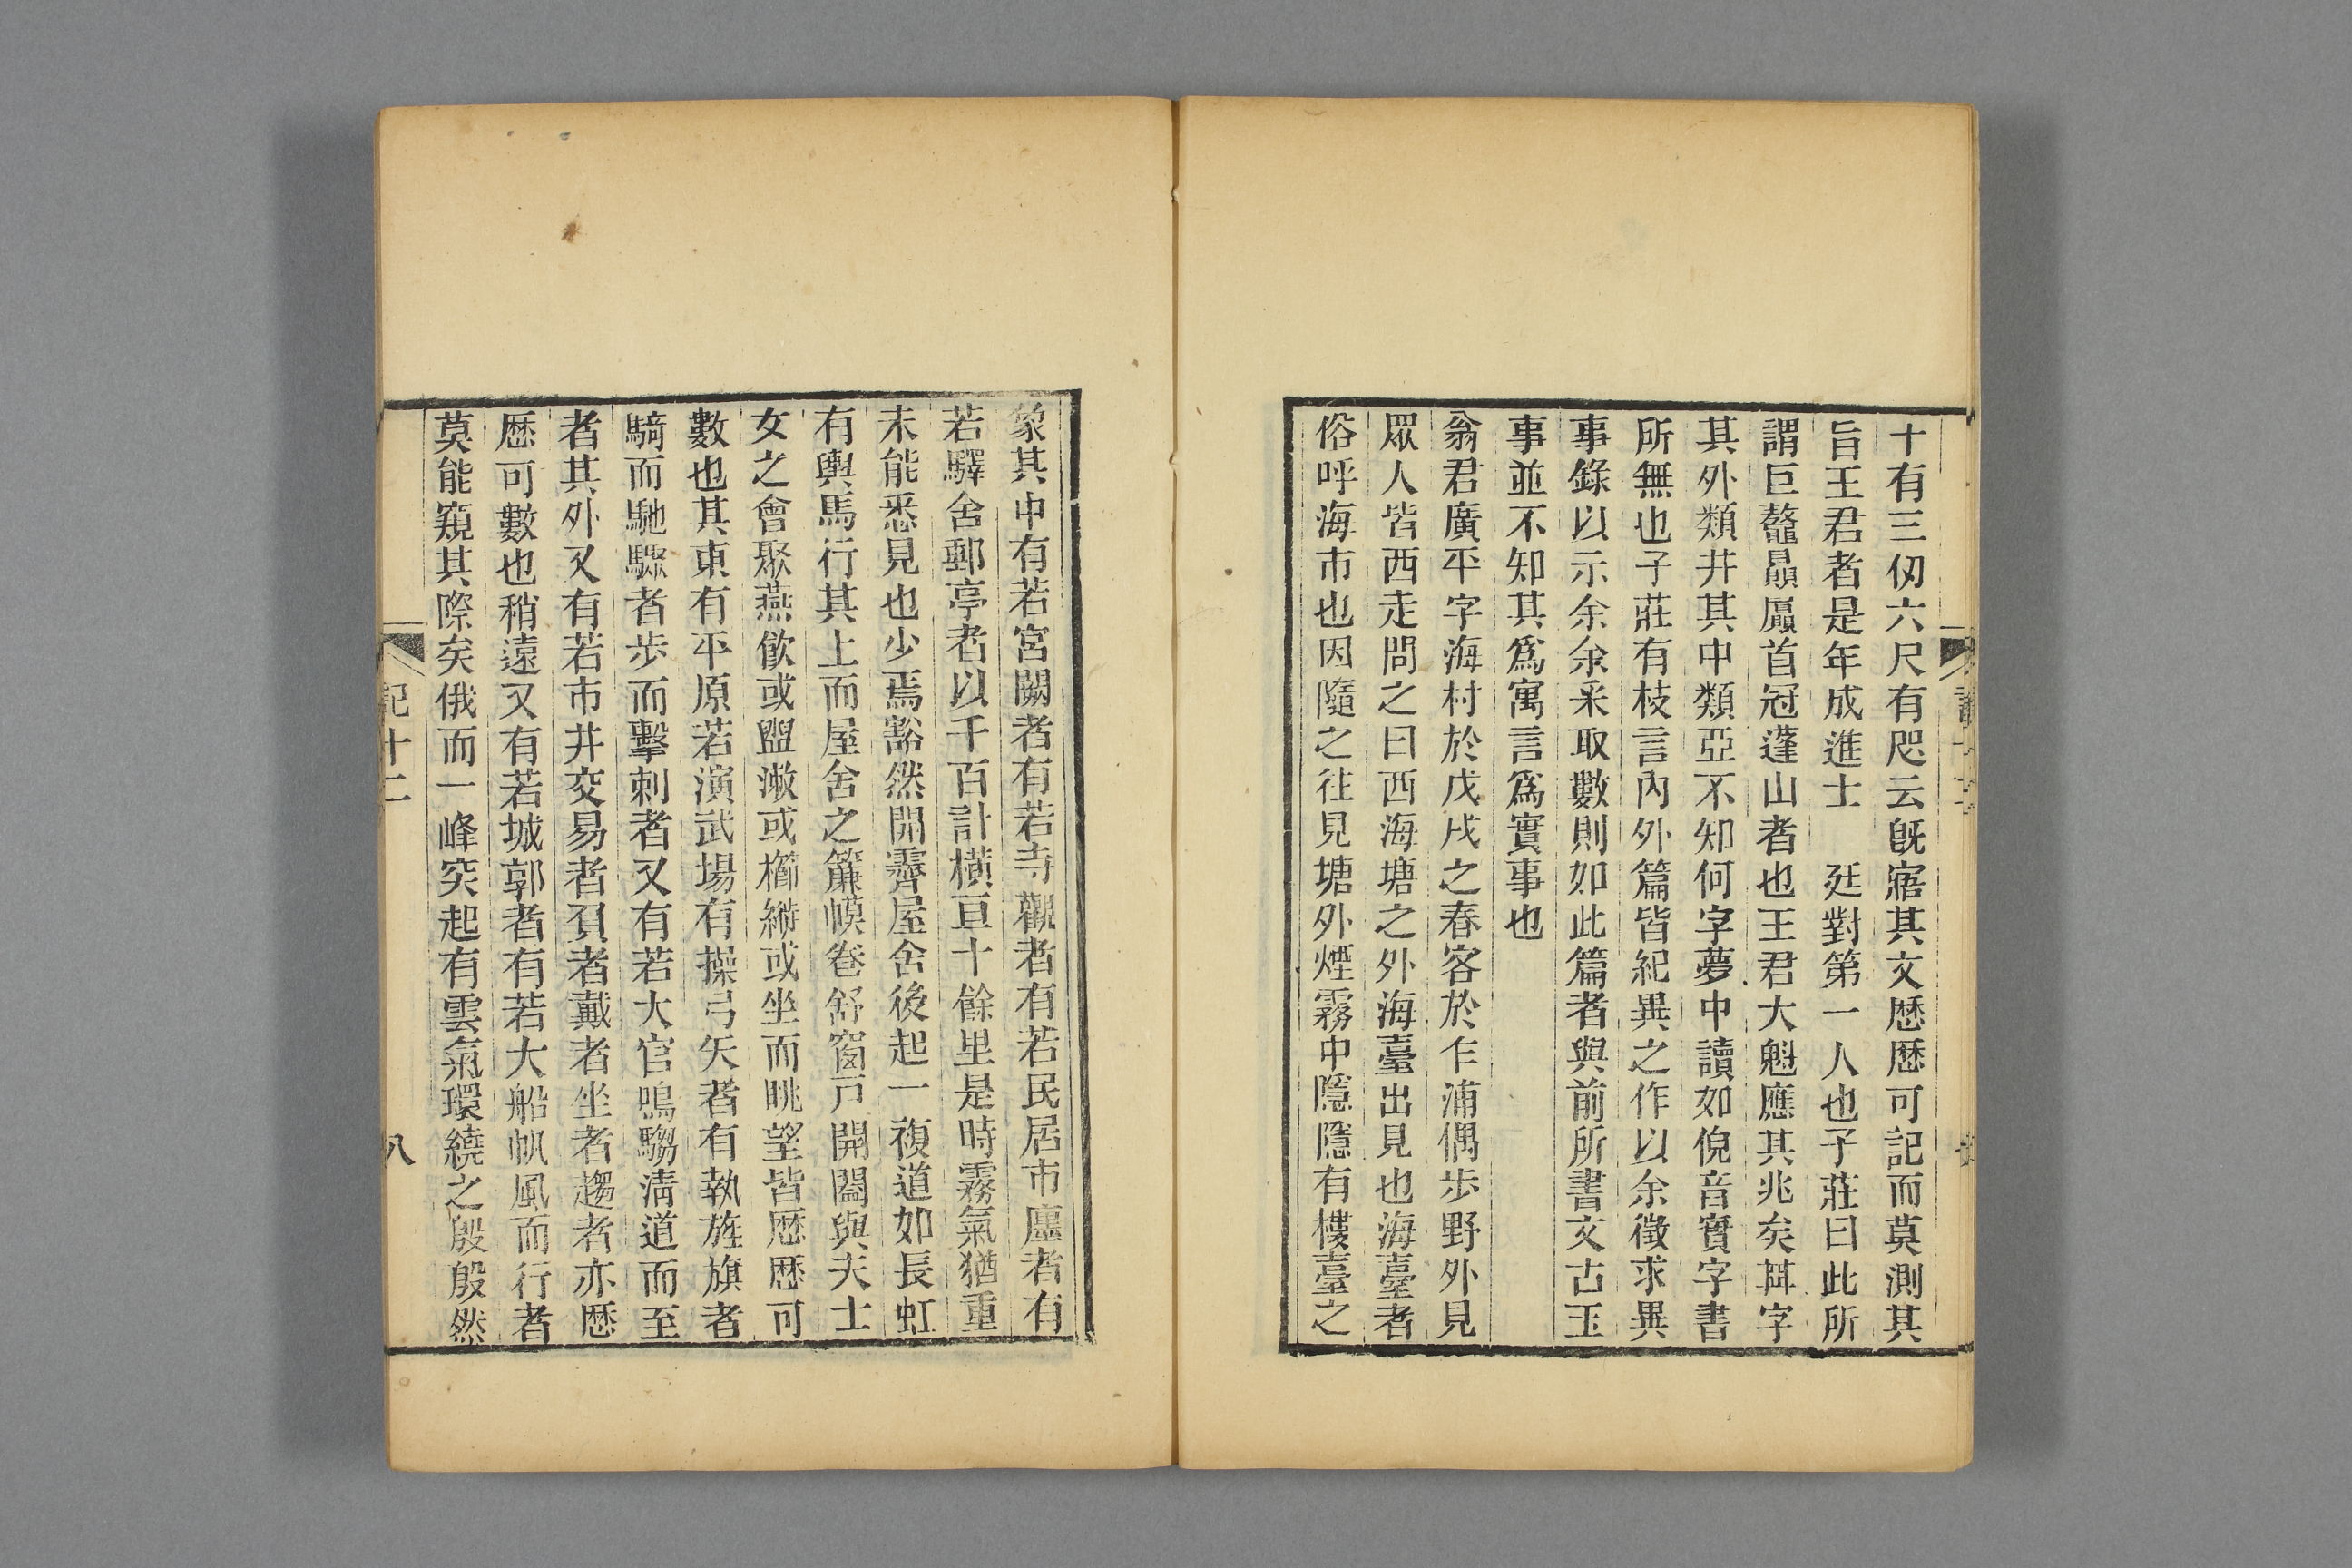 十有三仞六尺有咫云旣寤其文歷歷可記而莫測其
旨王君者是年成進士　廷對第一人也子莊曰此所
謂巨鼇贔屭首冠蓬山者也王君大魁應其兆矣其字
其外類井其中類亞不知何字夢中讀如倪音實字書
所無也子莊有枝言內外篇皆紀異之作以余徵求異
事錄以示余余采取數則如此篇者與前所書文古玉
事並不知其爲寓言爲實事也
翁君廣平字海村於戊戌之春客於乍浦偶步野外見
眾人皆西走問之曰西海塘之外海臺出見也海臺者
俗呼海市也因隨之往見塘外煙霧中隱隱有樓臺之
象其中有若宮闕者有若寺觀者有若民居市廛者有
若驛舍郵亭者以千百計橫亘十餘里是時霧氣猶重
未能悉見也少焉豁然開霽屋舍後起一複道如長虹
有輿馬行其上而屋舍之簾幙卷舒窗戸開闔與夫士
女之會聚燕飮或盥漱或櫛縰或坐而眺望皆歷歷可
數也其東有平原若演武場有操弓矢者有執旌旗者
騎而馳驟者步而擊刺者又有若大官鳴騶淸道而至
者其外又有若市井交易者負者戴者坐者趨者亦歷
歷可數也稍遠又有若城郭者有若大船帆風而行者
莫能窺其際矣俄而一峰突起有雲氣環繞之殷殷然
記十二
八